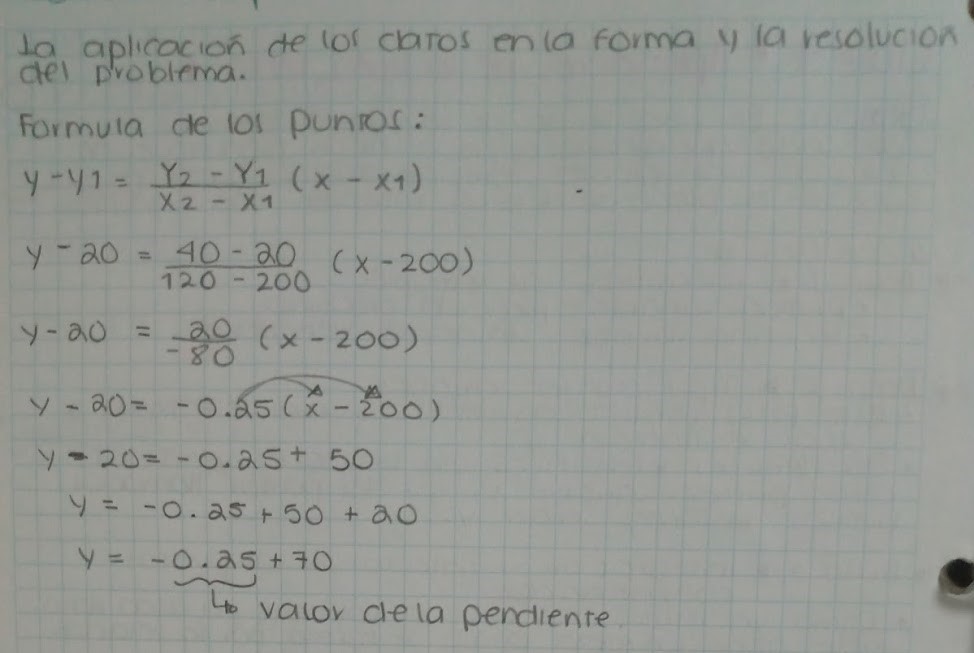 La aplicación de los datos en la forma y la resolucion
del problema.
Formula de los puntos:
y - y1 = Y2 - Y1 / X2 - X1 (x - x1)
y - 20 = 40 - 20 / 120 - 200 (x - 200)
y - 20 = 20 / -80 (x - 200)
y - 20 = -0.25 (x - 200)
y - 20 = -0.25 + 50
y = -0.25 + 50 + 20
y = -0.25 + 70
↳ valor de la pendiente